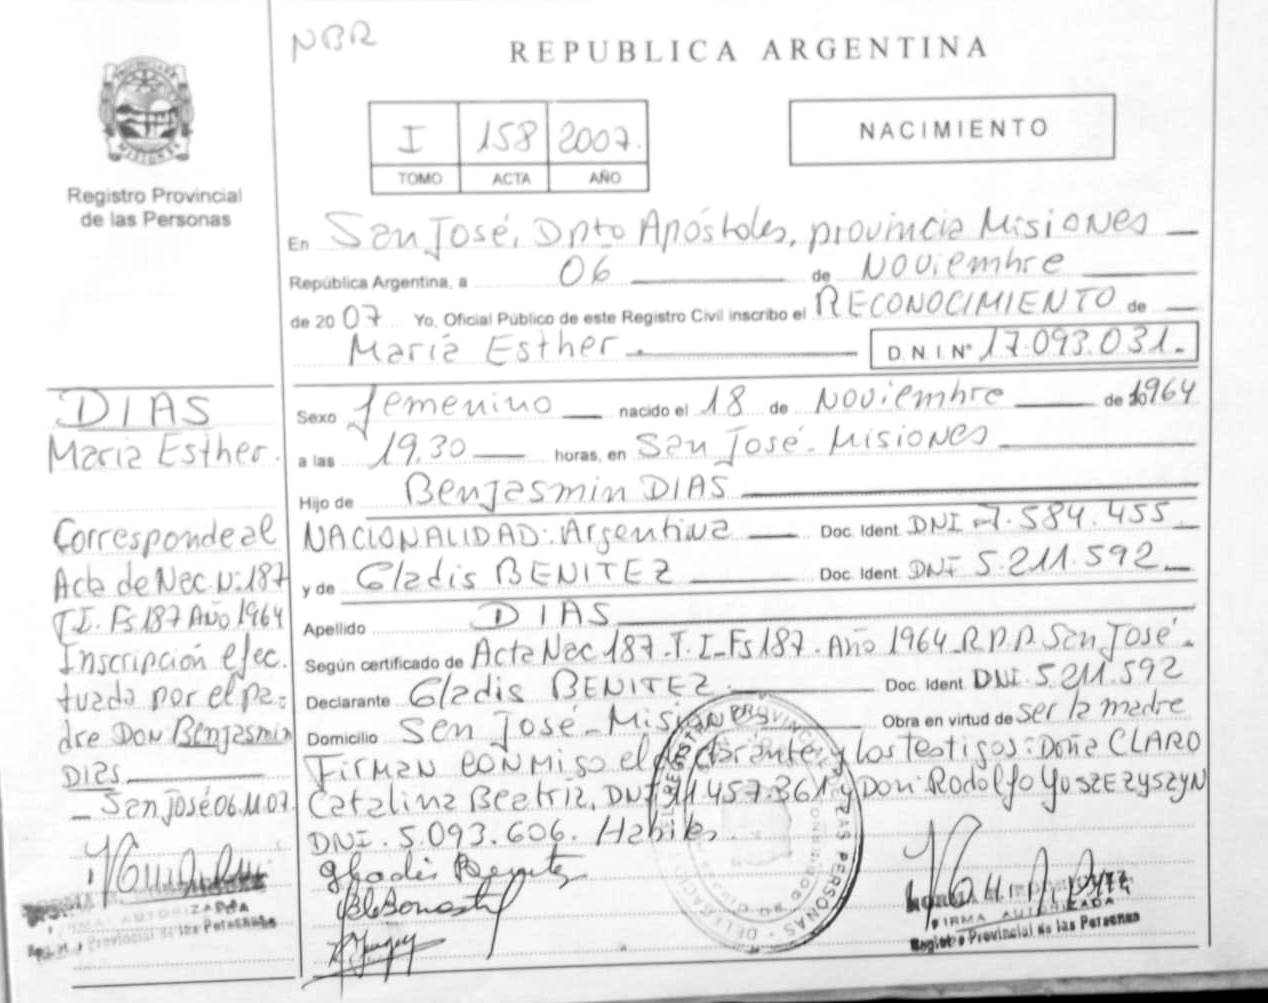 NBR
REPUBLICA ARGENTINA
PROVINCIA DE
MISIONES
Registro Provincial
de las Personas
I 158 2007.
TOMO ACTA AÑO
NACIMIENTO
En San José, Dpto Apóstoles, provincia Misiones
República Argentina, a 06 de Noviembre
de 2007 Yo, Oficial Público de este Registro Civil inscribo el RECONOCIMIENTO de
María Esther. D.N.I. N° 17.093.031.
Sexo femenino nacido el 18 de Noviembre de 1964
a las 19,30 horas, en San José - Misiones
Hijo de Benjasmin DIAS
NACIONALIDAD: Argentina Doc. Ident. DNI 7.584.455
y de Gladis BENITEZ Doc. Ident. DNI 5.211.592
Apellido DIAS
Según certificado de Acta Nac 187. T. I_Fs 187. Año 1964_R.P.P. San José.
Declarante Gladis BENITEZ. Doc. Ident. DNI. 5.211.592
Domicilio San José - Misiones Obra en virtud de ser la madre
Firman conmigo el declarante y los testigos: Doña CLARO
Catalina Beatriz, DNI 11.457.361 y Don Rodolfo YUSZEZYSZYN
DNI. 5.093.606. Habiles.
DIAS
Maria Esther.
Corresponde al
Acta de Nac. N: 187
T.I. Fs 187 Año 1964
Inscripción efec.
tuada por el pa-
dre Don Benjasmin
Dias.
San José 06.11.07.
FIRMA AUTORIZADA
Registro Provincial de las Personas
FIRMA AUTORIZADA
Registro Provincial de las Personas